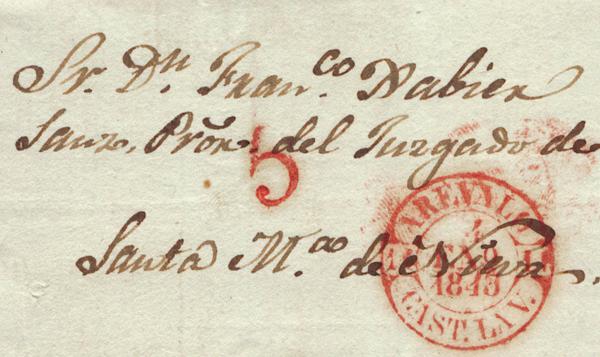 Sr. Dn. Franco. Xabier
Sanz, Prór. del Juzgado de
5
Santa M.a de Nieva.
AREVALO
4
1845
CAST. LA V.